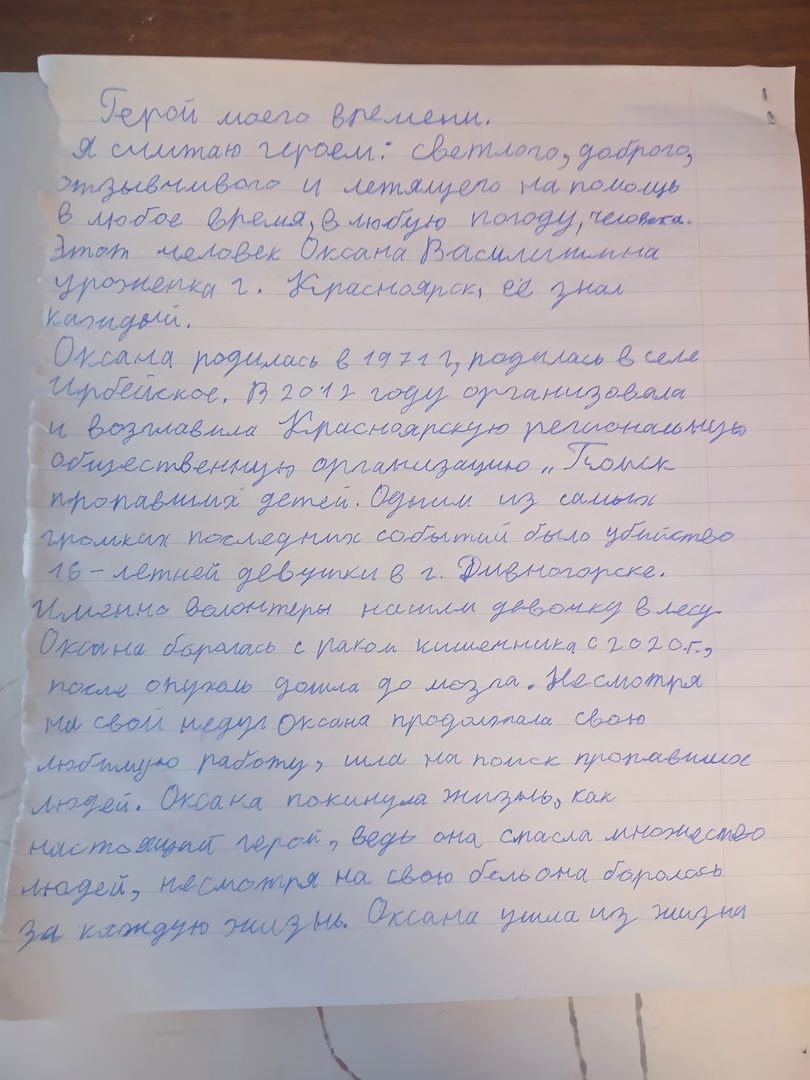 Герой моего времени.
Я считаю героем: светлого, доброго,
отзывчивого и летящего на помощь
в любое время, в любую погоду, человека.
Этот человек Оксана Василишина
уроженка г. Красноярск, её знал
каждый.
Оксана родилась в 1971 г, родилась в селе
Ирбейское. В 2012 году организовала
и возглавила Красноярскую региональную
общественную организацию „Поиск
пропавших детей. Одним из самых
громких последних событий было убийство
16-летней девушки в г. Дивногорске.
Именно волонтеры нашли девочку в лесу.
Оксана боролась с раком кишечника с 2020г.,
после опухоль дошла до мозга. Несмотря
на свой недуг Оксана продолжала свою
любимую работу, шла на поиск пропавших
людей. Оксана покинула жизнь, как
настоящий герой, ведь она спасла множество
людей, несмотря на свою боль она боролась
за каждую жизнь. Оксана ушла из жизни